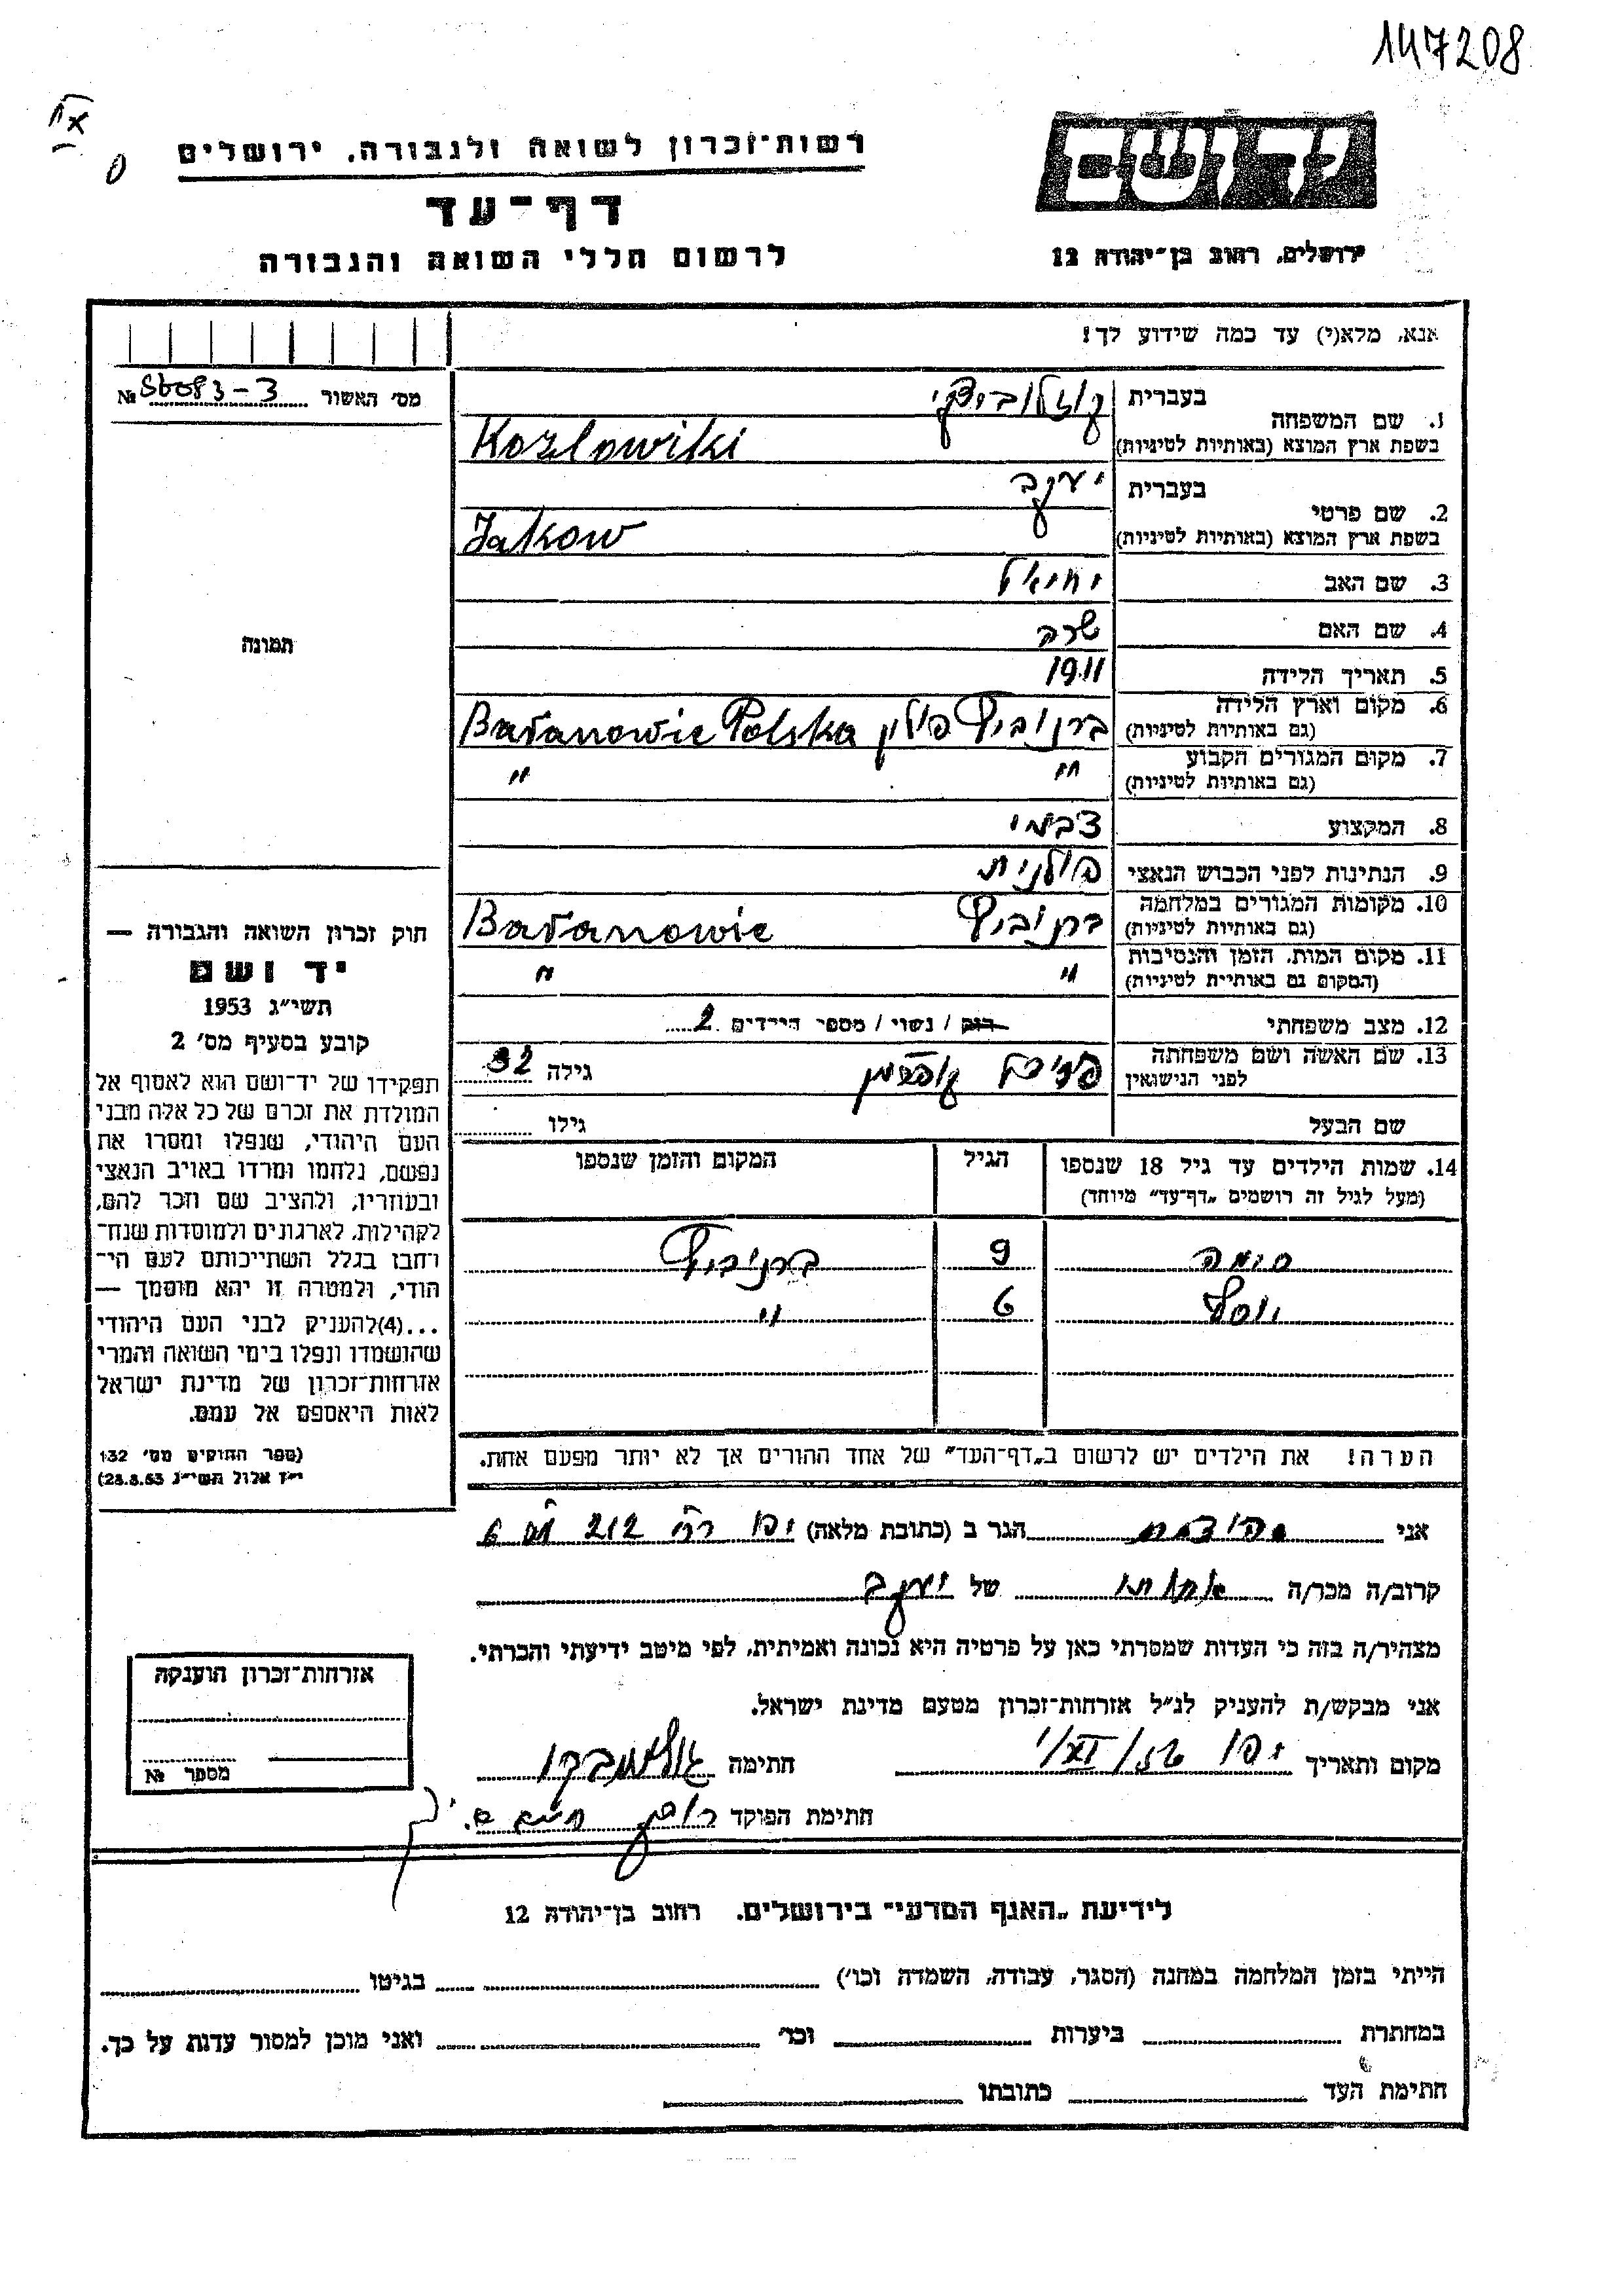 147208
רשות־זכרון לשואה ולגבורה, ירושלים
דף־עד
לרשום חללי השואה והגבורה
ידושם
ירושלים, רחוב בן־יהודה 12
אנא, מלא(י) עד כמה שידוע לך!
מס׳ האשור № 56083-3
תמונה
1. שם המשפחה בעברית קוזלוביצקי
בשפת ארץ המוצא (באותיות לטיניות) Kozlowiki
2. שם פרטי בעברית יעקב
בשפת ארץ המוצא (באותיות לטיניות) Jakow
3. שם האב יחיאל
4. שם האם שרה
5. תאריך הלידה 1911
6. מקום וארץ הלידה (גם באותיות לטיניות) ברנוביץ פולין Baranowie Polska
7. מקום המגורים הקבוע (גם באותיות לטיניות) " "
8. המקצוע צבעי
9. הנתינות לפני הכבוש הנאצי פולנית
10. מקומות המגורים במלחמה (גם באותיות לטיניות) ברנוביץ Baranowie
11. מקום המות, הזמן והנסיבות (המקום גם באותיות לטיניות) " "
12. מצב משפחתי רוק / נשוי / מספר הילדים 2
13. שם האשה ושם משפחתה לפני הנישואין גילה 32
שם הבעל גילו
14. שמות הילדים עד גיל 18 שנספו הגיל המקום והזמן שנספו
(מעל לגיל זה רושמים „דף־עד” מיוחד)
סומה 9 ברנוביץ
יוסף 6 "
הערה! את הילדים יש לרשום ב„דף־העד” של אחד ההורים אך לא יותר מפעם אחת.
חוק זכרון השואה והגבורה —
יד ושם
תשי״ג 1953
קובע בסעיף מס׳ 2
תפקידו של יד־ושם הוא לאסוף אל
המולדת את זכרם של כל אלה מבני
העם היהודי, שנפלו ומסרו את
נפשם, נלחמו ומרדו באויב הנאצי
ובעוזריו, ולהציב שם וזכר להם,
לקהילות, לארגונים ולמוסדות שנח־
רחבו בגלל השתייכותם לעם הי־
הודי, ולמטרה זו יהא מוסמך —
...(4)להעניק לבני העם היהודי
שהושמדו ונפלו בימי השואה והמרי
אזרחות־זכרון של מדינת ישראל
לאות היאספם אל עמם.
(ספר החוקים מס׳ 132
י״ז אלול תשי״ג 28.8.53)
אני הגר ב (כתובת מלאה) יפו 212
קרוב/ה מכר/ה אחותו של יעקב
מצהיר/ה בזה כי העדות שמסרתי כאן על פרטיה היא נכונה ואמיתית, לפי מיטב ידיעתי והכרתי.
אני מבקש/ת להעניק לנ״ל אזרחות־זכרון מטעם מדינת ישראל.
מקום ותאריך יפו חתימה
חתימת הפוקד
אזרחות־זכרון הוענקה
מספר №
לידיעת „האגף המדעי” בירושלים, רחוב בן־יהודה 12
הייתי בזמן המלחמה במחנה (הסגר, עבודה, השמדה וכו׳) בגיטו
במחתרת ביערות וכו׳ ואני מוכן למסור עדות על כך.
חתימת העד כתובתו